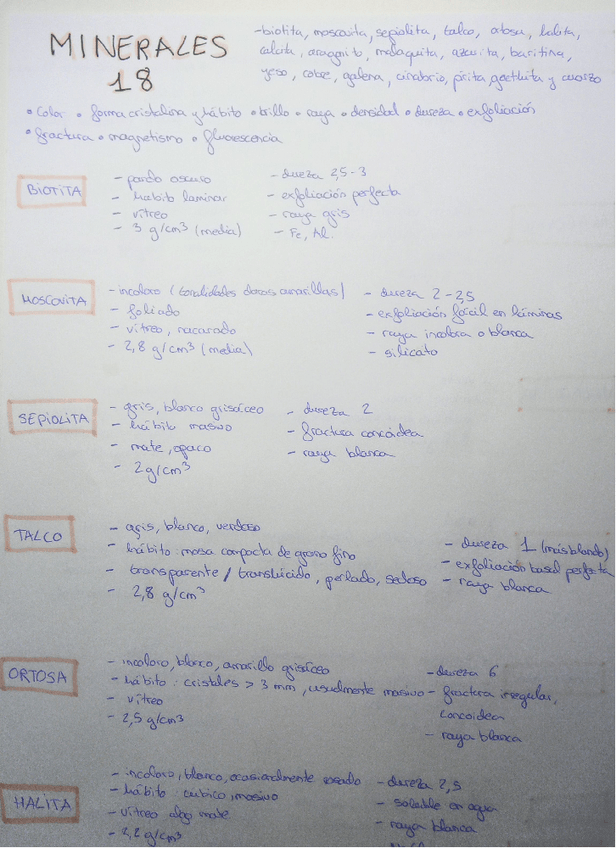 MINERALES
18
-biotita, moscovita, sepiolita, talco, ortosa, halita,
calcita, aragonito, malaquita, azurita, baritina,
yeso, cobre, galena, cinabrio, pirita, goethita y cuarzo
• color • forma cristalina y hábito • brillo • raya • densidad • dureza • exfoliación
• fractura • magnetismo • fluorescencia
BIOTITA
- pardo oscuro
- hábito laminar
- vítreo
- 3 g/cm³ (media)
- dureza 2,5-3
- exfoliación perfecta
- raya gris
- Fe, Al.
MOSCOVITA
- incoloro (tonalidades claras amarillas)
- foliado
- vítreo, nacarado
- 2,8 g/cm³ (media)
- dureza 2-2,5
- exfoliación fácil en láminas
- raya incolora o blanca
- silicato
SEPIOLITA
- gris, blanco grisáceo
- hábito masivo
- mate, opaco
- 2g/cm³
- dureza 2
- fractura concoidea
- raya blanca
TALCO
- gris, blanco, verdoso
- hábito: masa compacta de grano fino
- transparente / translúcido, perlado, sedoso
- 2,8 g/cm³
- dureza 1 (más blando)
- exfoliación basal perfecta
- raya blanca
ORTOSA
- incoloro, blanco, amarillo grisáceo
- hábito: cristales > 3 mm, usualmente masivo
- vítreo
- 2,5 g/cm³
- dureza 6
- fractura irregular,
concoidea
- raya blanca
HALITA
- incoloro, blanco, ocasionalmente rosado
- hábito: cúbico, masivo
- vítreo algo mate
- 2,2 g/cm³
- dureza 2,5
- soluble en agua
- raya blanca